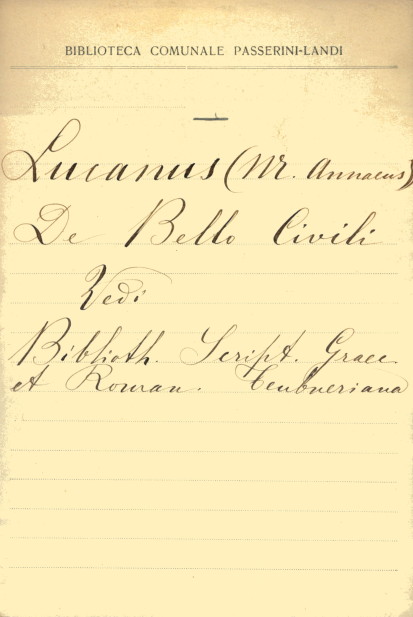 BIBLIOTECA COMUNALE PASSERINI-LANDI
—
Lucanus (M. Annaeus)
De Bello Civili
Vedi
Biblioth. Script. Graec.
et Roman. Teubneriana